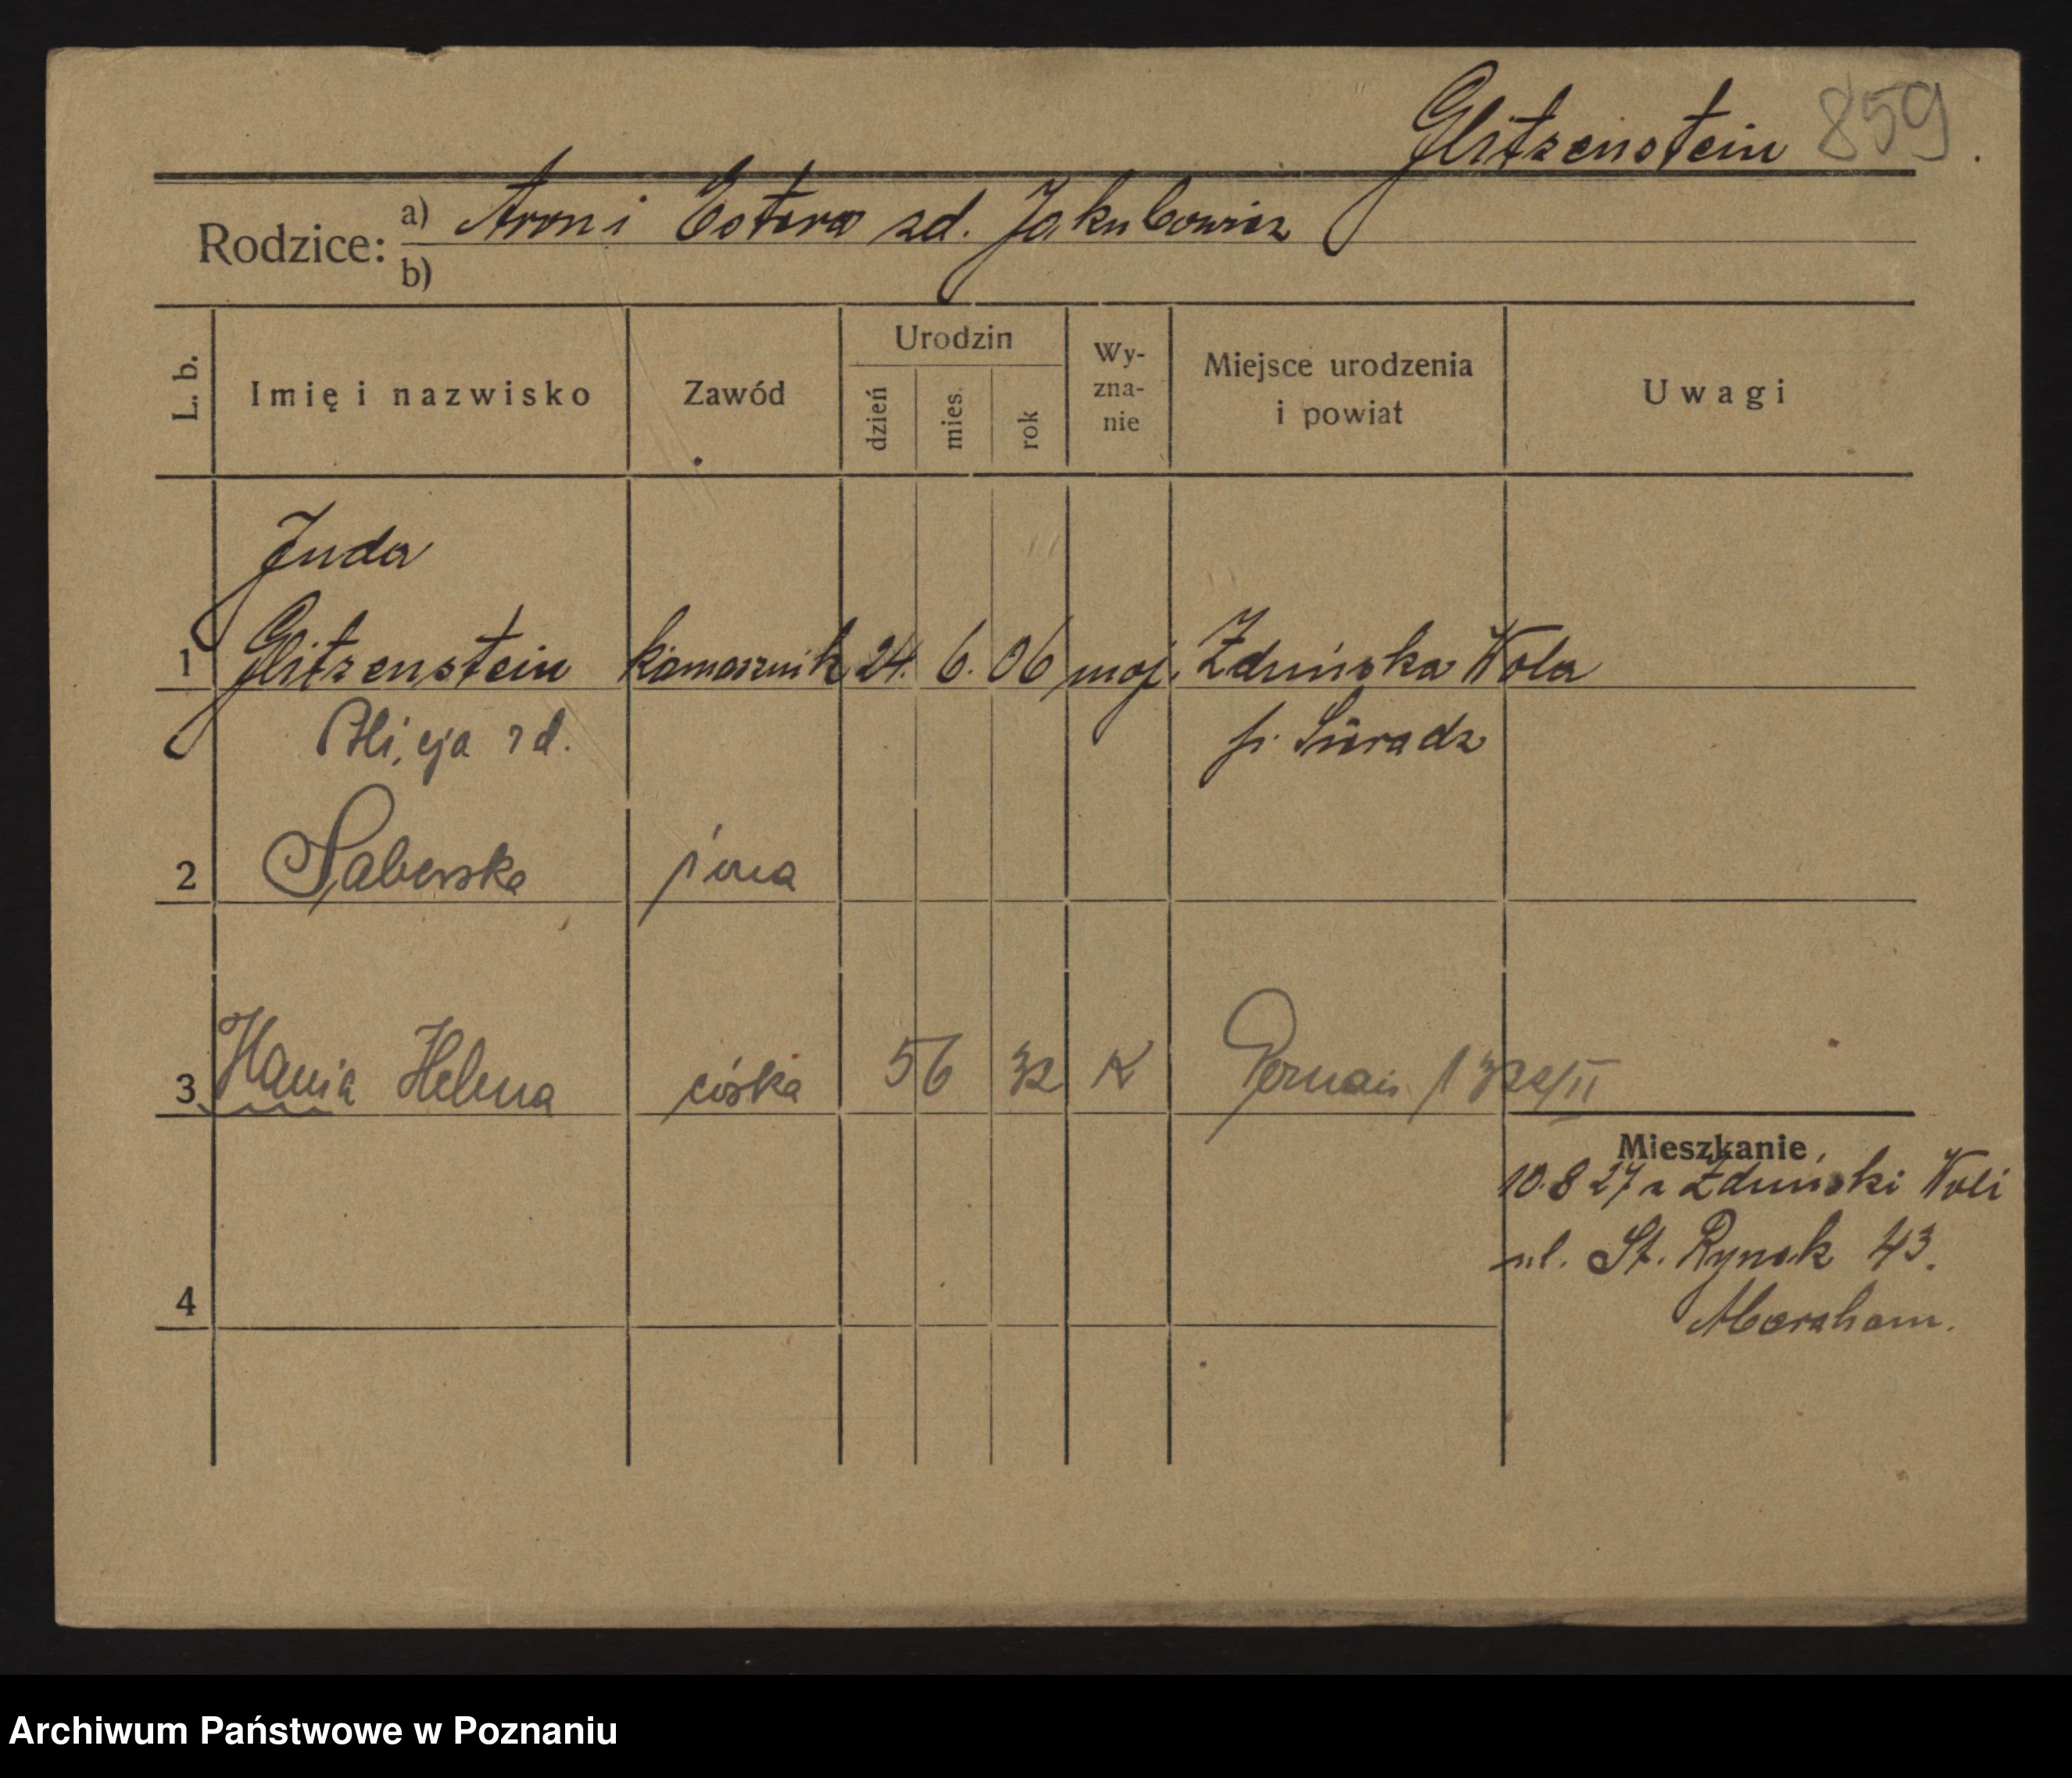 Glitzenstein 859
Rodzice: a) Aron i Estera zd. Jakubowicz
b)
L. b. Imię i nazwisko Zawód Urodzin dzień mies. rok Wy-zna-nie Miejsce urodzenia i powiat Uwagi
Juda
1 Glitzenstein kamasznik 24. 6. 06 moj. Zduńska Wola
Alicja zd. p. Sieradz
2 Saberska żona
3 Hania Helena córka 5 6 32 K Poznań
Mieszkanie
10.8 27 z Zduński Woli
ul. St. Rynek 43.
Abraham.
4
Archiwum Państwowe w Poznaniu